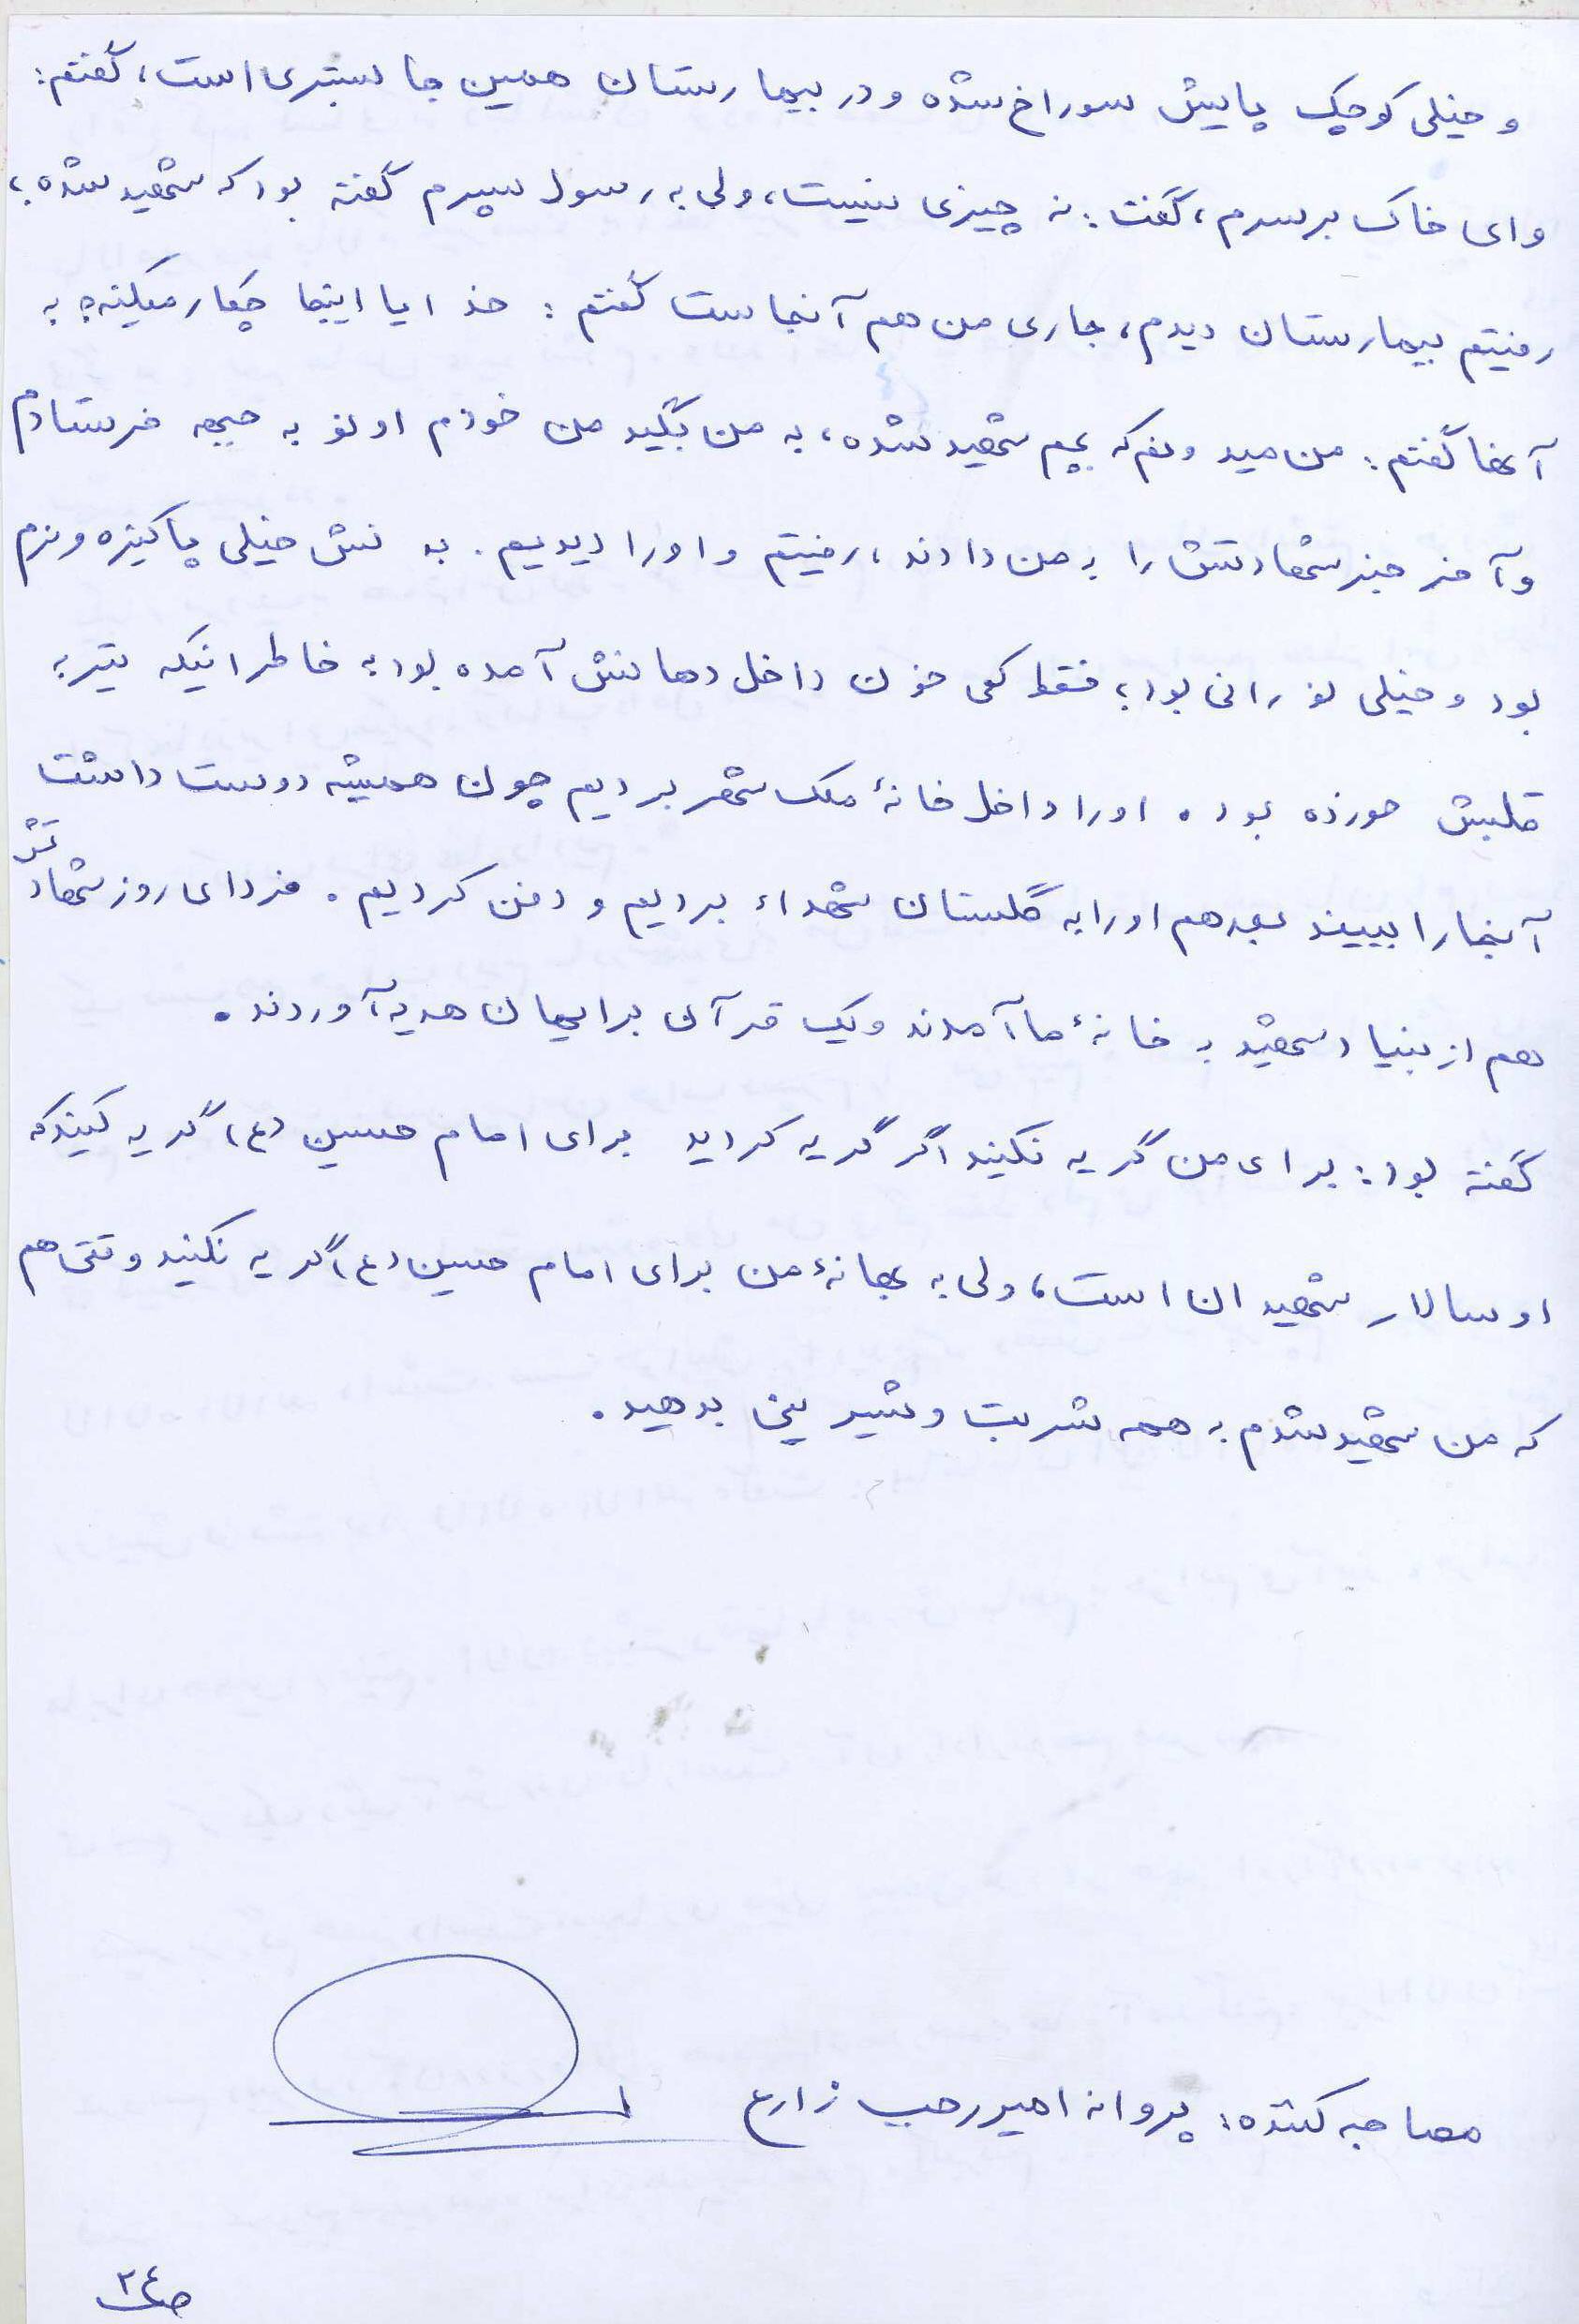 و خیلی کوچک پایش سوراخ شده و در بیمارستان همین جا بستری است، گفتم:
وای خاک بر سرم، گفت: نه چیزی نیست، ولی به رسول پسرم گفته بود که شهید شده؛
رفتیم بیمارستان دیدم، جاری من هم آنجاست گفتم: خدایا اینجا چکار میکنه؟ به
آنها گفتم: من میدونم که بچم شهید شده، به من بگید من خودم اونو به جبهه فرستادم
و آخر خبر شهادتش را به من دادند، رفتیم و او را دیدیم. بدنش خیلی پاکیزه و نرم
بود و خیلی نورانی بود؛ فقط کمی خون داخل دهانش آمده بود به خاطر اینکه تیر به
قلبش خورده بود. او را داخل خانهٔ ملک شهر بردیم چون همیشه دوست داشت
آنجا را ببیند بعد هم او را به گلستان شهداء بردیم و دفن کردیم. فردای روز شهادتش
هم از بنیاد شهید به خانهٔ ما آمدند و یک قرآن برایمان هدیه آوردند.
گفته بود: برای من گریه نکنید اگر گریه کردید برای امام حسین (ع) گریه کنید که
او سالار شهیدان است، ولی به بهانهٔ من برای امام حسین (ع) گریه نکنید وقتی هم
که من شهید شدم به همه شربت و شیرینی بدهید.
مصاحبه کننده: پروانه امیررجب زارع
ص۲۴